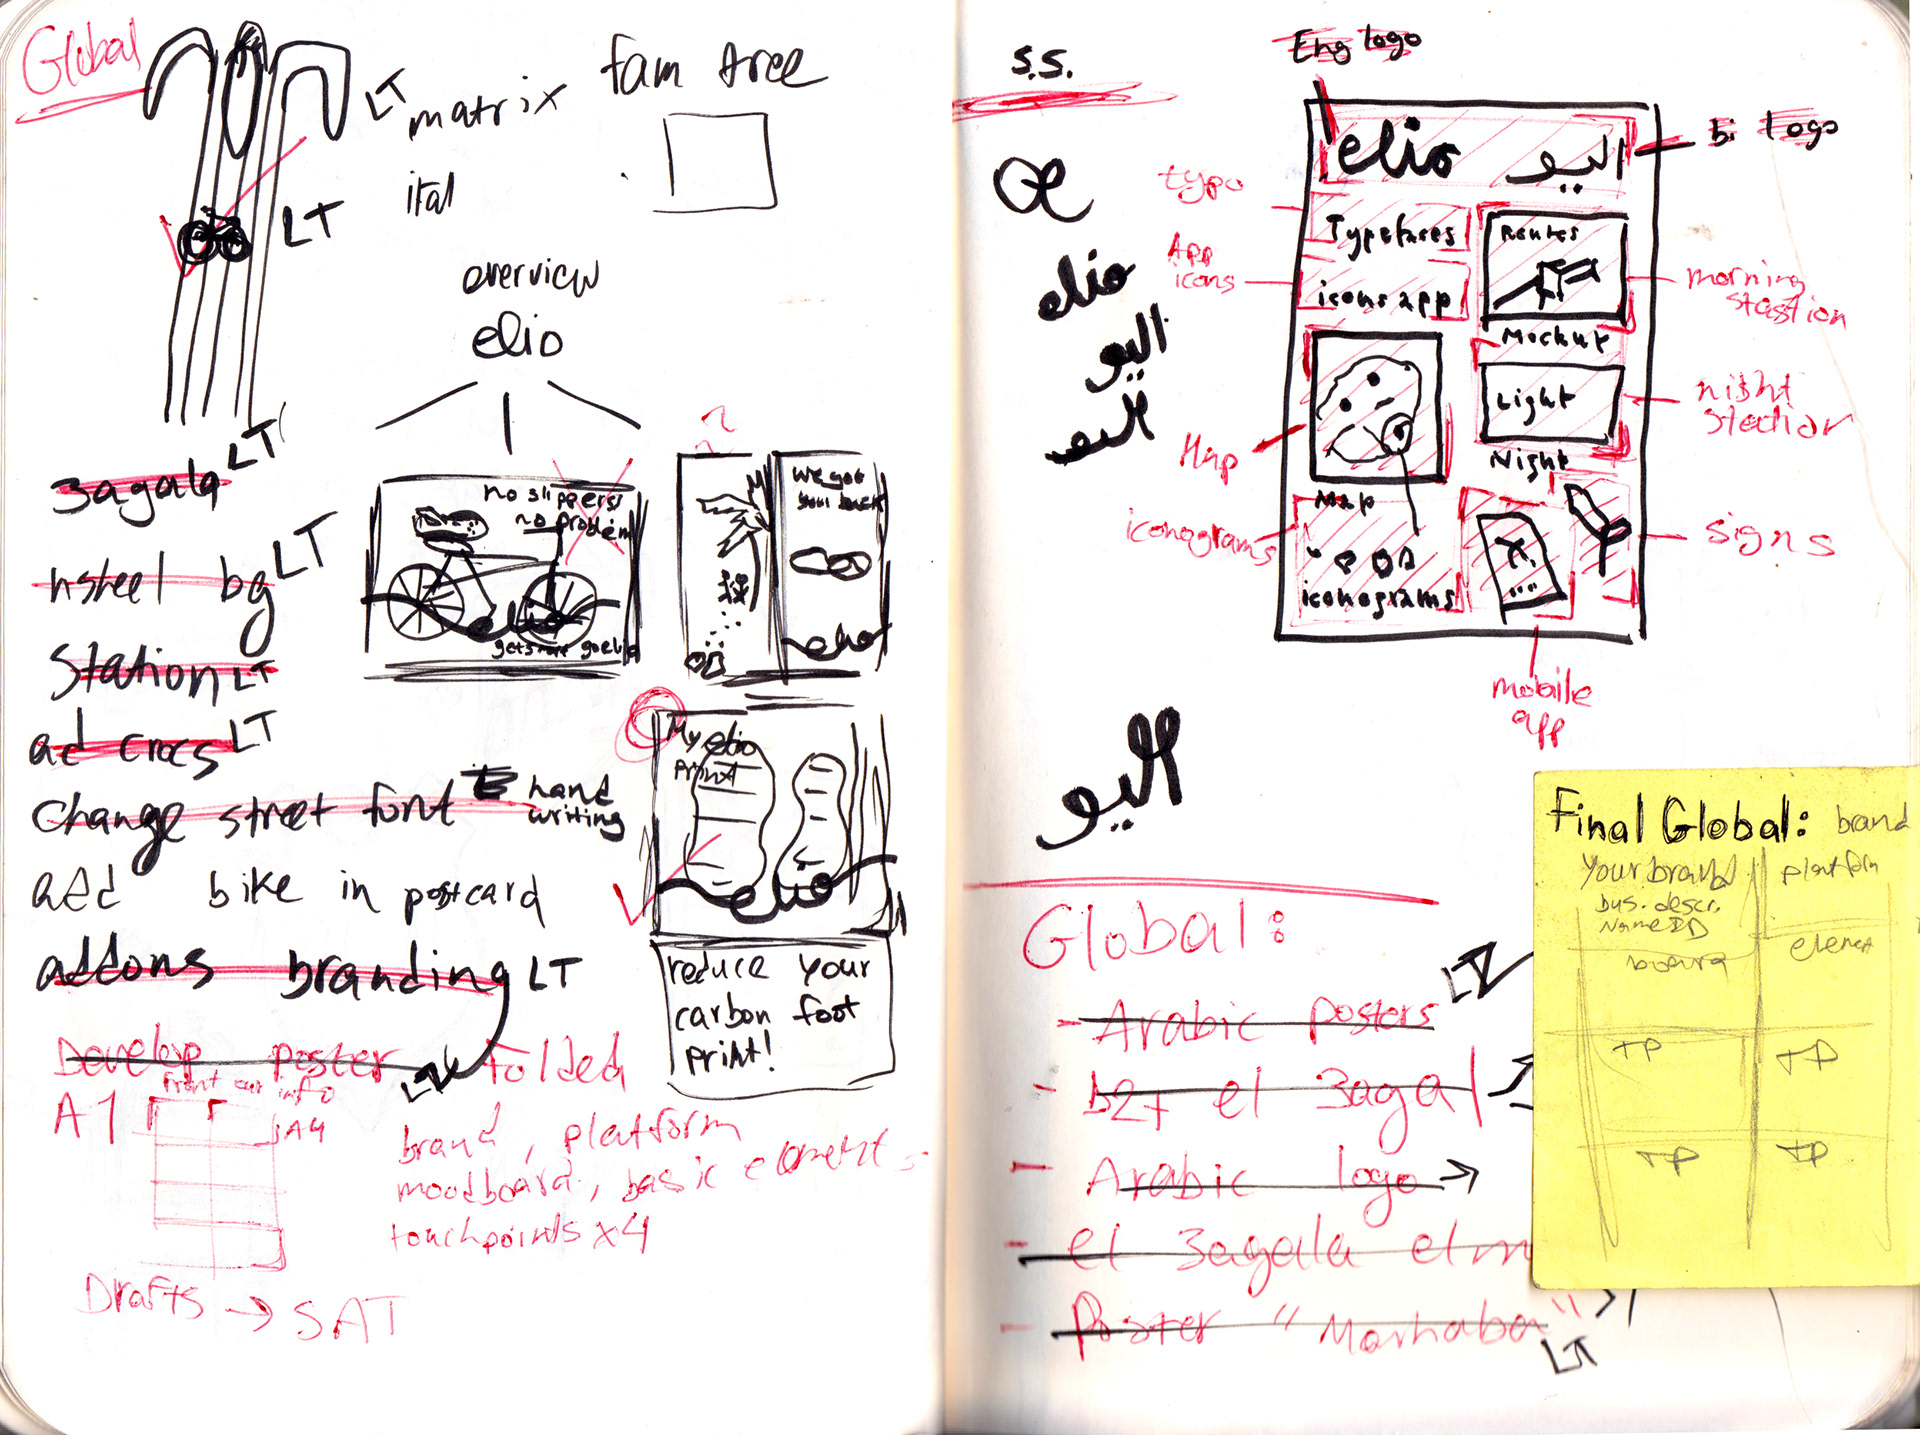 Global
LT
matrix
fam tree
ital
LT
overview
elio
3agala LT
LT
Station LT
ad crocs LT
Change street font
hand
writing
add bike in postcard
addons branding LT
Develop poster
folded
front cov info
A1
A4
brand, platform
moodboard, basic elements
touchpoints x4
Drafts → SAT
no slippers
no problem
elio
We got
your back
elio
My elio
Print
elio
reduce your
carbon foot
print!
S.S.
Eng logo
bi logo
elio
اليو
typo
Typefaces
Routes
App
icons
icons app
morning
stastion
Mockup
Light
night
stastion
Night
Map
Map
iconograms
iconograms
signs
mobile
app
elio
اليو
اليو
اليو
Global:
- Arabic posters
- el 3agal
- Arabic logo →
- el 3agala
- Poster "Marhaba"
LT
Final Global: brand
Your brand
platform
bus. descr.
Name ID
board
TP
TP
TP
TP